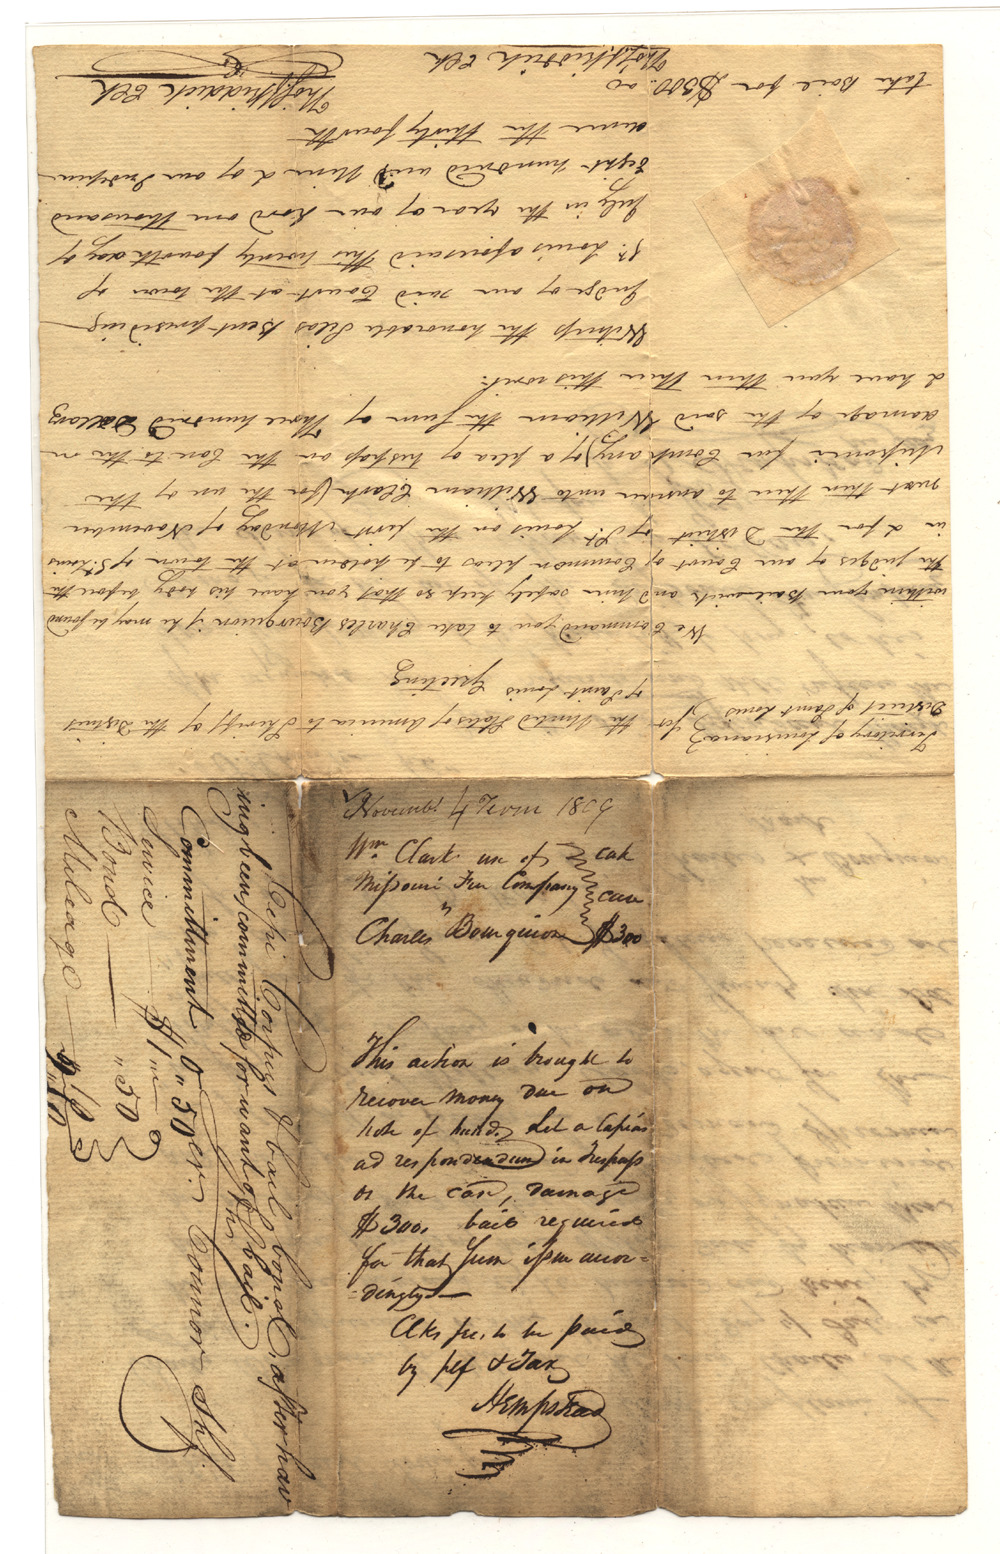 Territory of Louisiana } sct
District of Saint Louis }
the United States of America to Sheriff of the District
of Saint Louis Greeting
We Command you to take Charles Bourguion if he may be found
within your Bailiwick and him safely keep so that you have his body before the
the judges of our Court of Common pleas to be holden at the town of St. Louis
in & for the District of St. Louis on the first Monday of November
next then there to answer unto William Clark (for the use of the
Missouri fur Company) of a plea of trespass on the Case to the
damage of the said William the Sum of Three hundred Dollars
& have you then there this writ:
Witness the honorable Silas Bent presiding
Judge of our said Court at the town of
St. Louis aforesaid this twenty fourth day of
July in the year of our Lord one thousand
Eight hundred and Nine & of our Indepen-
dence the thirty fourth
Thos. F. Riddick Clk
take Bail for $300.00
Thos. F. Riddick Clk
November Term 1809
4
Wm. Clark use of
Missouri Fur Company
vs
Charles Bourguion
case
$300
This action is brought to
recover money due on
note of hand, Let a Capias
ad respondendum in Trespass
on the case, damage
$300, bail required
for that Sum issue accor-
dingly
Clks fee, to be paid
by plf & Tax
Hempstead
Cepi Corpus & bail bond, after hav
ing been committed for want of bail.
Commitment 0"50 Jer: Connor Shf.
Service $1"
Bond "50
Mileage